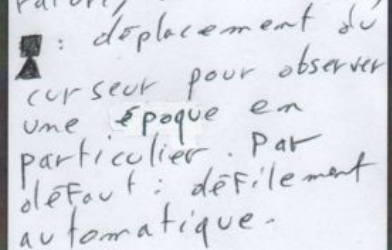 : déplacement du
curseur pour observer
une époque en
particulier. Par
défaut : défilement
automatique.